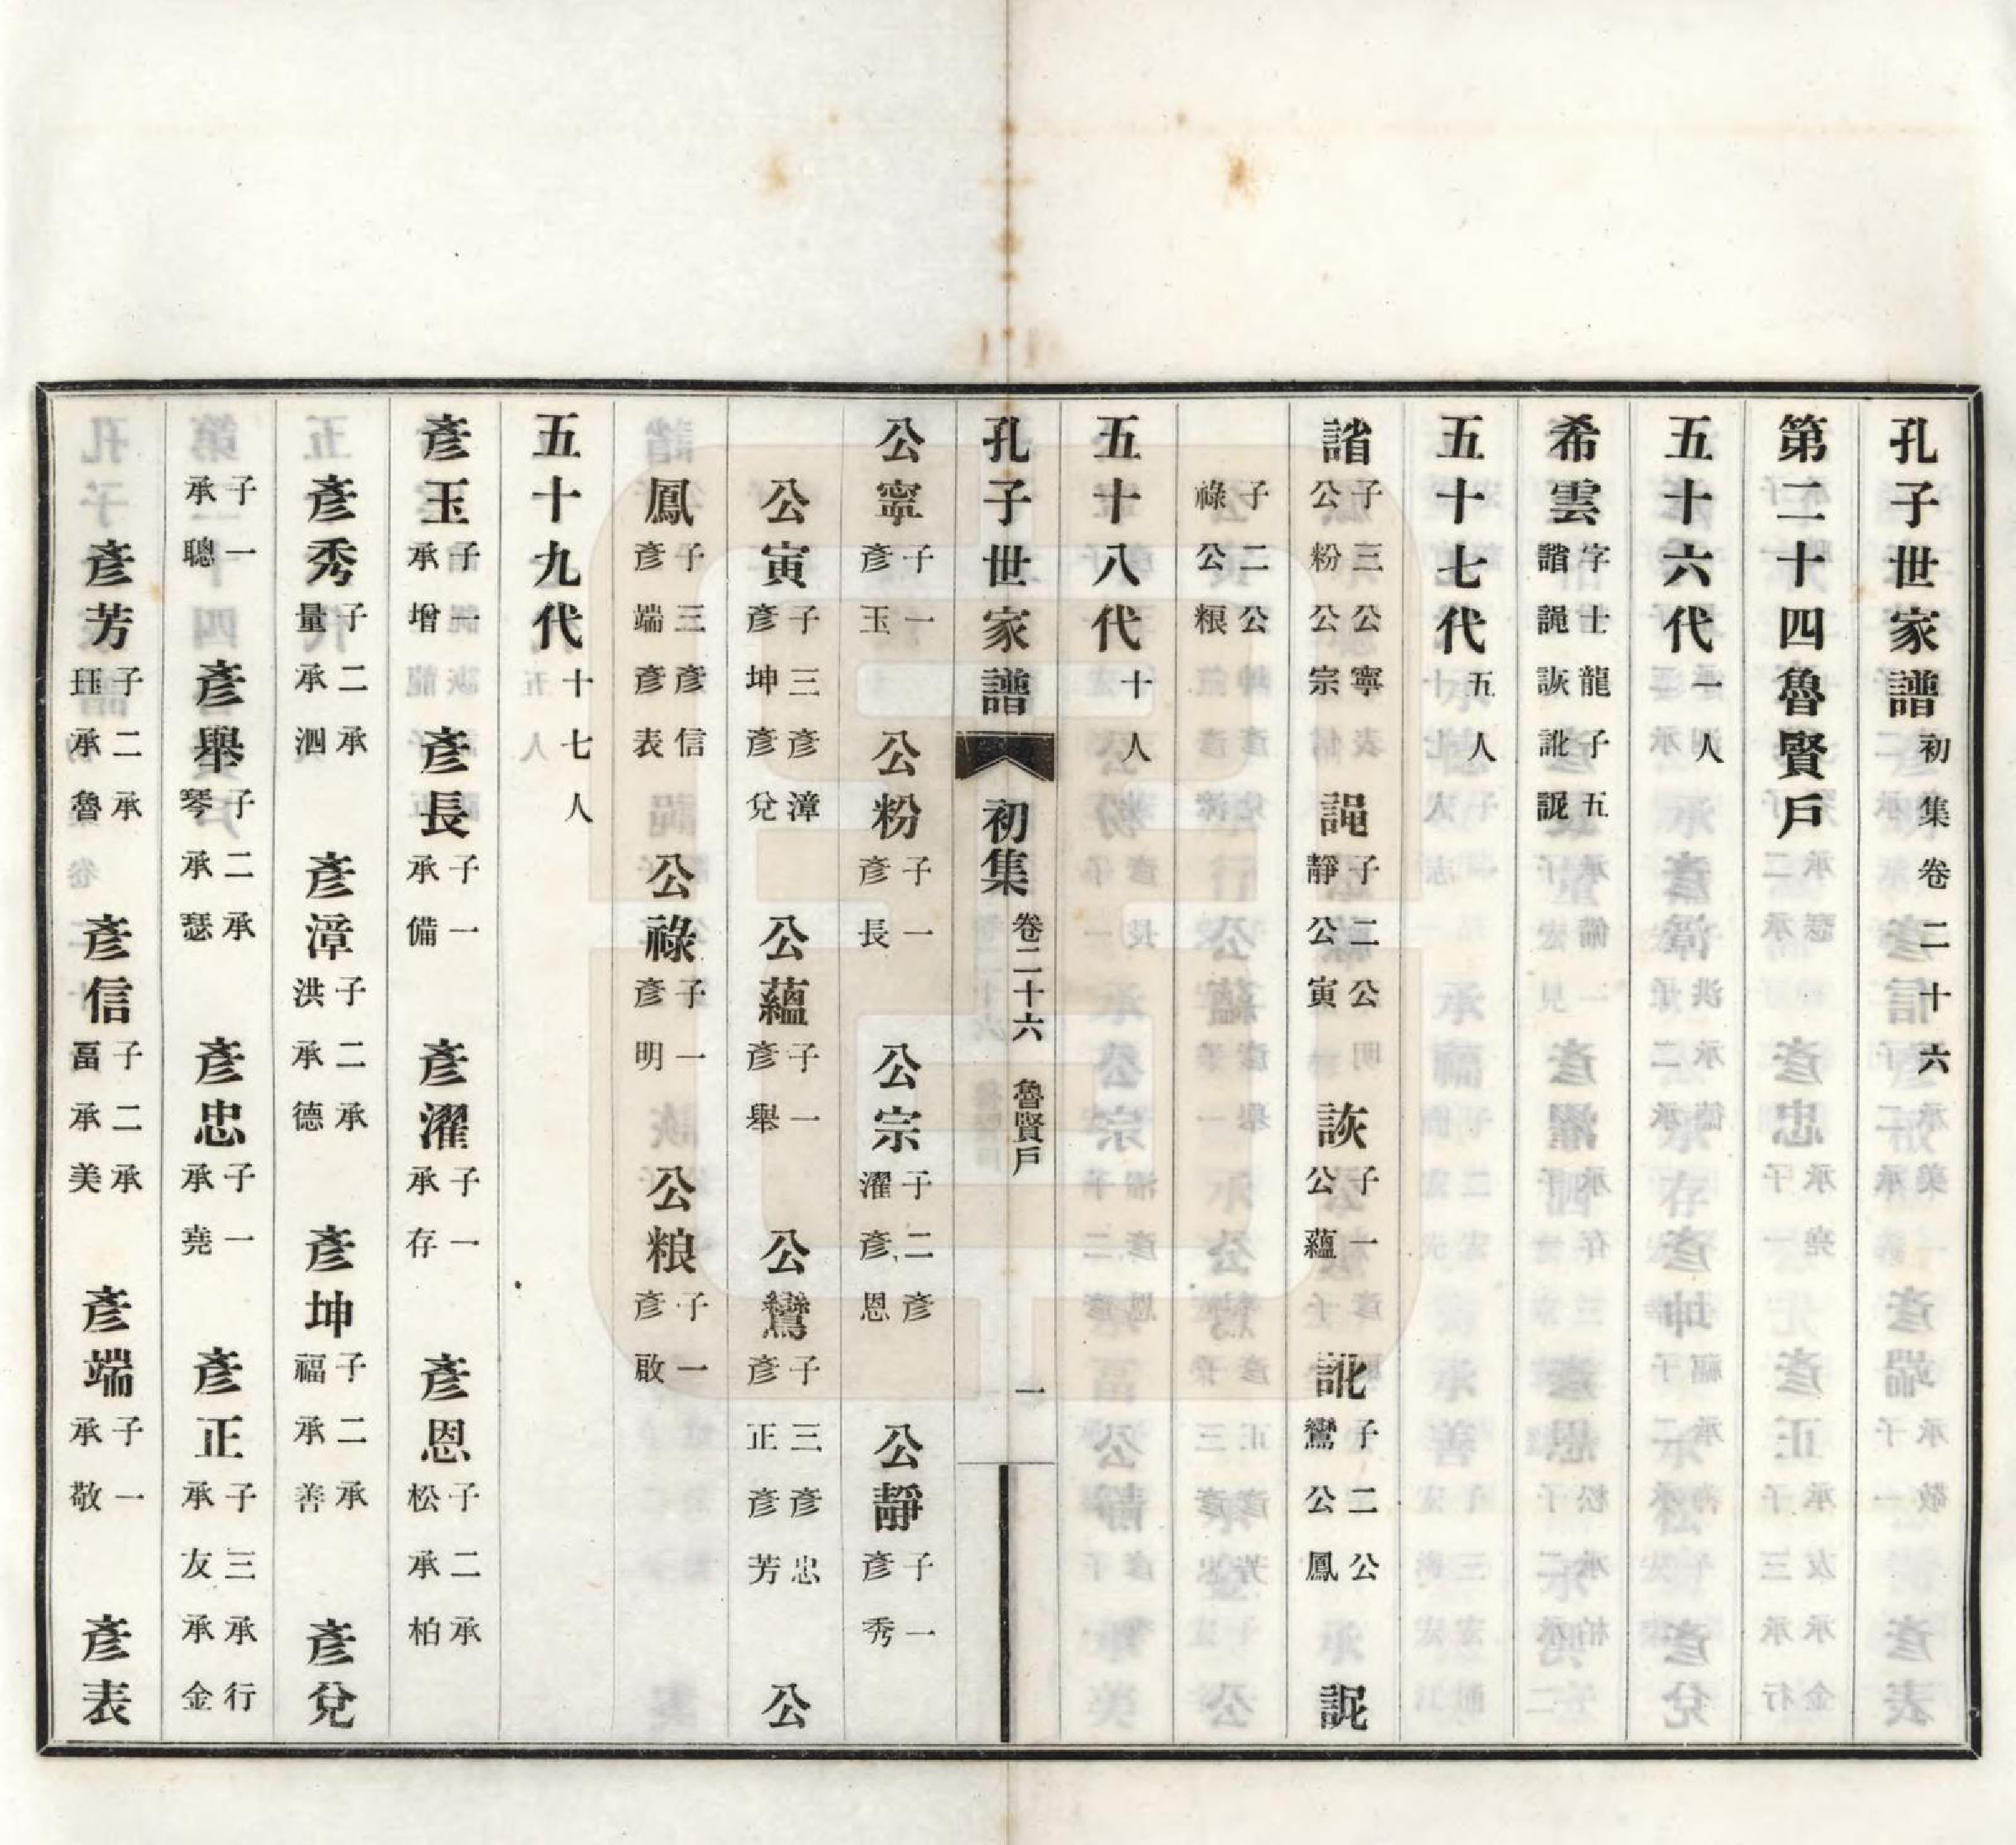 孔子世家譜初集卷二十六
第二十四魯賢戶
五十六代一人
希雲字士龍子五諧譝詼訛誽
五十七代五人
諧子三公寧公粉公宗 譝子二公靜公寅 詼子一公蘊 訛子二公鸞公鳳 誽
子二公祿公粮
五十八代十人
孔子世家譜 初集 卷二十六 魯賢戶 一
公寧子一彥玉 公粉子一彥長 公宗子二彥濯彥恩 公靜子一彥秀
公寅子三彥漳彥坤彥兌 公蘊子一彥舉 公鸞子三彥忠彥正彥芳 公
鳳子三彥信彥端彥表 公祿子一彥明 公粮子一彥啟
五十九代十七人
彥玉子一承增 彥長子一承備 彥濯子一承存 彥恩子二承松承柏
彥秀子二承量承泗 彥漳子二承洪承德 彥坤子二承福承善 彥兌
子一承聰 彥舉子二承琴承瑟 彥忠子一承堯 彥正子三承行承友承金
彥芳子二承珏承魯 彥信子二承畐承美 彥端子一承敬 彥表